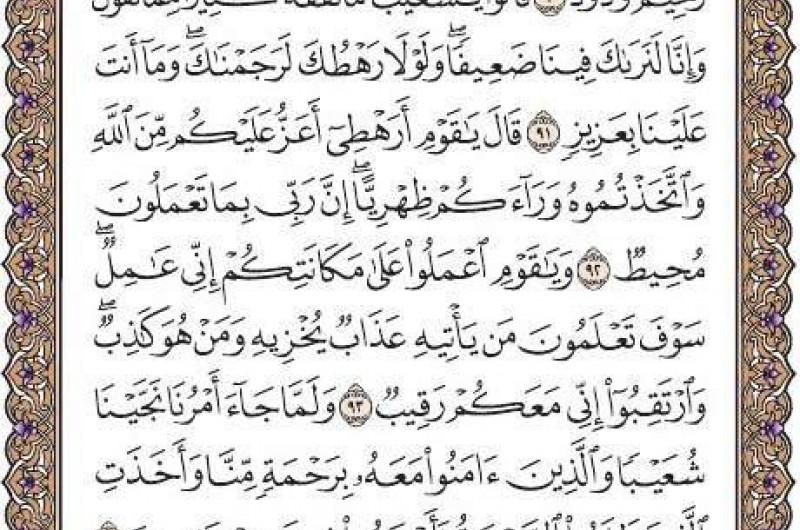 رَحِيمٌ وَدُودٌ قَالُوا يَٰشُعَيْبُ مَا نَفْقَهُ كَثِيرًا مِّمَّا تَقُولُ
وَإِنَّا لَنَرَىٰكَ فِينَا ضَعِيفًاۖ وَلَوْلَا رَهْطُكَ لَرَجَمْنَٰكَۖ وَمَآ أَنتَ
عَلَيْنَا بِعَزِيزٍ ٩١ قَالَ يَٰقَوْمِ أَرَهْطِىٓ أَعَزُّ عَلَيْكُم مِّنَ ٱللَّهِ
وَٱتَّخَذْتُمُوهُ وَرَآءَكُمْ ظِهْرِيًّاۖ إِنَّ رَبِّى بِمَا تَعْمَلُونَ
مُحِيطٌ ٩٢ وَيَٰقَوْمِ ٱعْمَلُوا۟ عَلَىٰ مَكَانَتِكُمْ إِنِّى عَٰمِلٌۖ
سَوْفَ تَعْلَمُونَ مَن يَأْتِيهِ عَذَابٌ يُخْزِيهِ وَمَنْ هُوَ كَٰذِبٌۖ
وَٱرْتَقِبُوٓا۟ إِنِّى مَعَكُمْ رَقِيبٌ ٩٣ وَلَمَّا جَآءَ أَمْرُنَا نَجَّيْنَا
شُعَيْبًا وَٱلَّذِينَ ءَامَنُوا۟ مَعَهُۥ بِرَحْمَةٍ مِّنَّا وَأَخَذَتِ